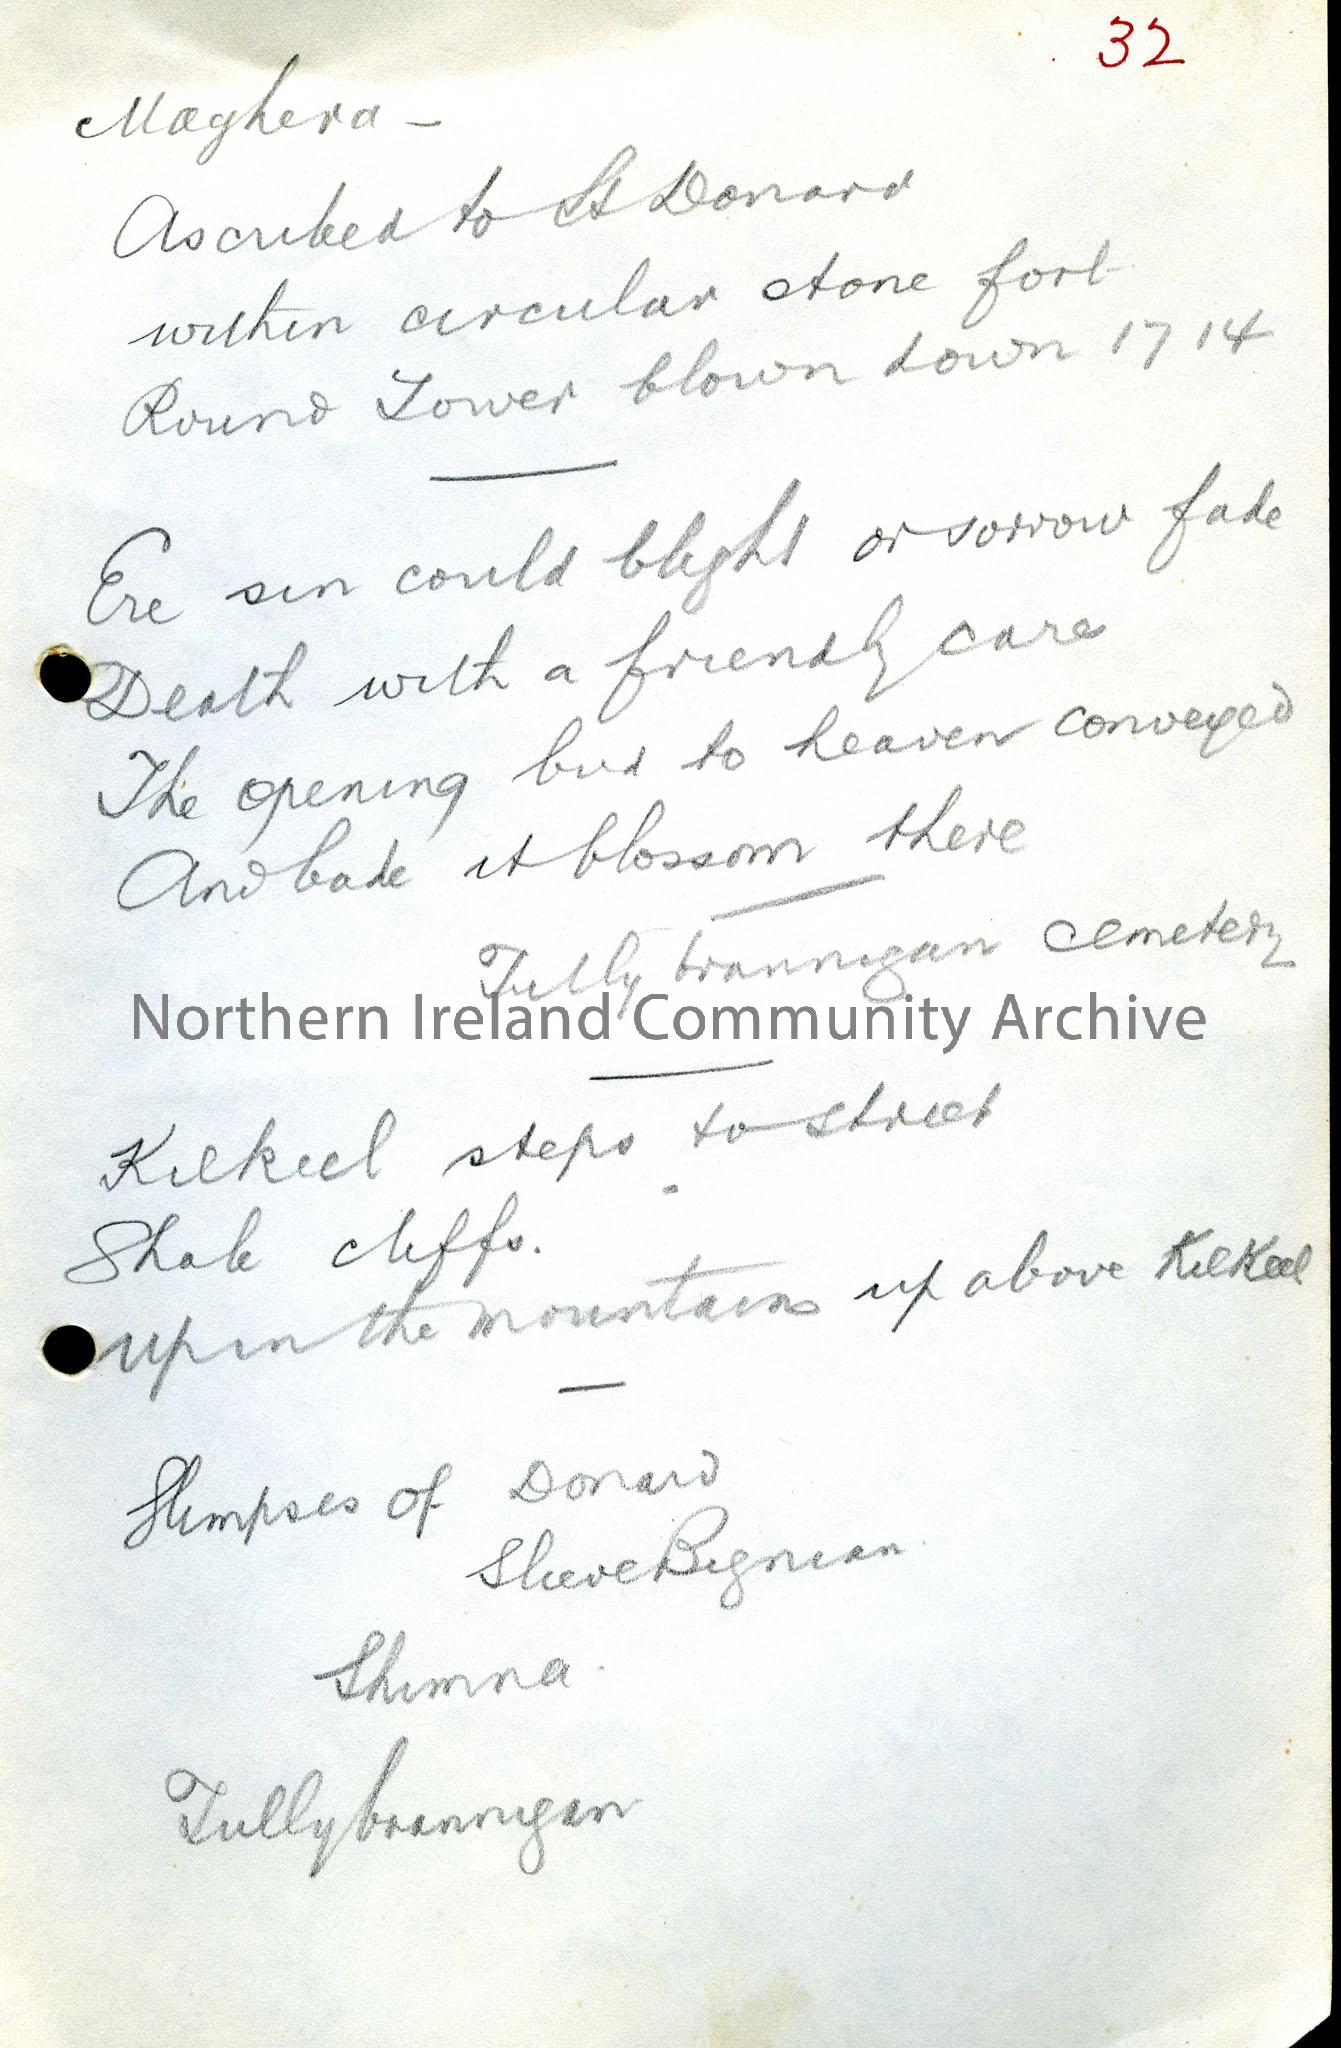 32
Maghera -
Ascribed to St Donard
within circular stone fort
Round Tower blown down 1714
Ere sin could blight or sorrow fade
Death with a friendly care
The opening bud to heaven conveyed
And bade it blossom there
Tullybrannigan cemetery
Northern Ireland Community Archive
Kilkeel steps to street
Shale cliffs.
up in the mountains up above Kilkeel
Glimpses of Donard
Slieve Bignian.
Shimna.
Tullybrannigan